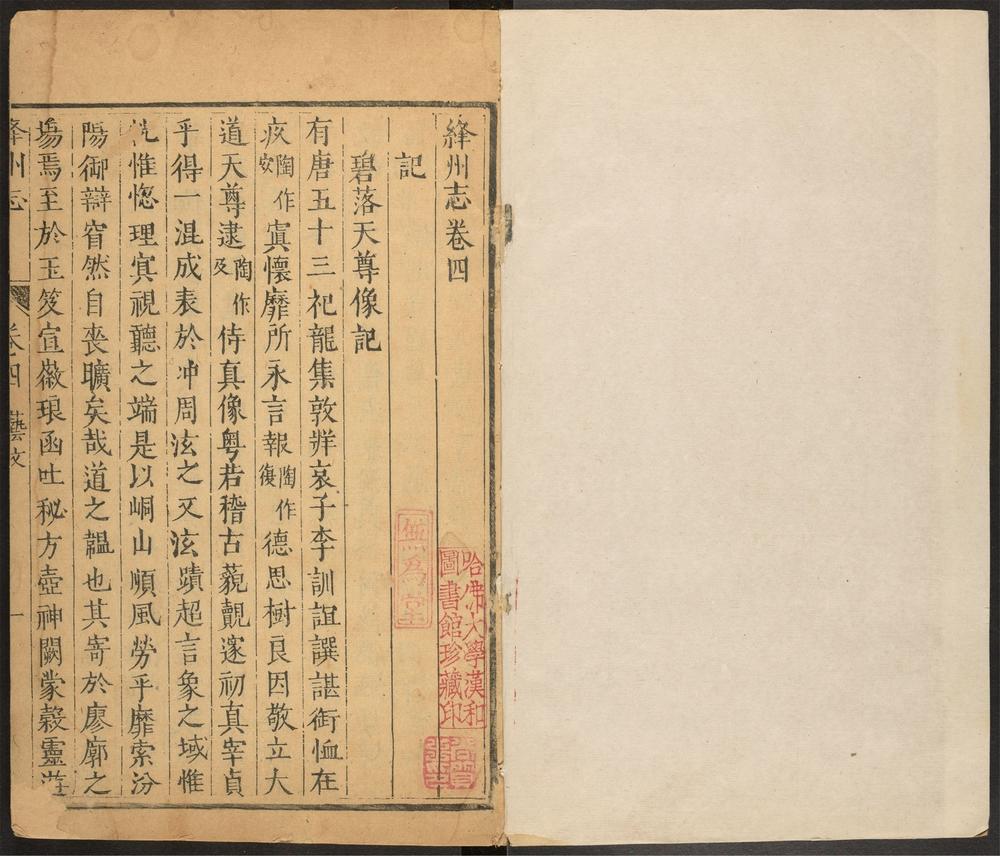 絳州志卷四
記
碧落天尊像記
有唐五十三祀龍集敦牂哀子李訓誼譔諶銜恤在
疚陶作安寘懷靡所永言報陶作復德思樹良因敬立大
道天尊逮陶作及侍真像粵若稽古藐覿邃初真宰貞
乎得一混成表於冲周泫之又泫蹟超言象之域惟
惟惚理寘視聽之端是以峒山順風勞乎靡索汾
陽御辯窅然自喪曠矣哉道之韞也其寄於廖廓之
場焉至於玉笈宣徽琅函吐秘方壺神闕蒙縠靈遊
絳州志 卷四 藝文 一
無為堂
哈佛大學漢和圖書館珍藏印